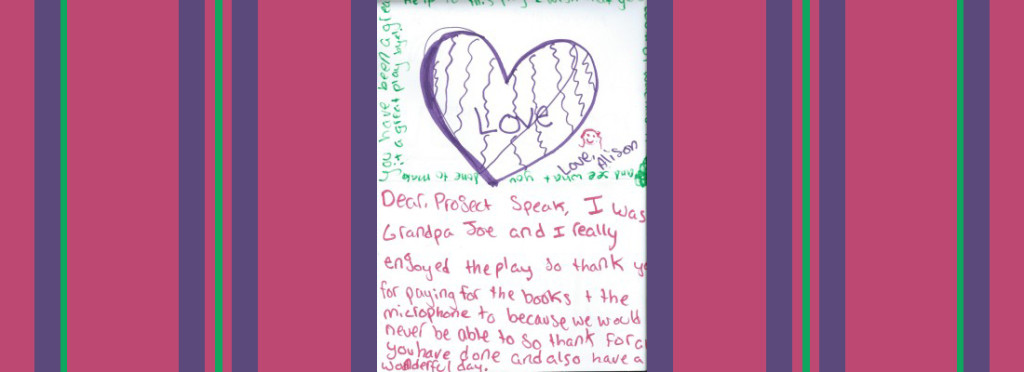 help
You have been a grea
it a great play bye!
Love
Love, Alison
and see what you done to make
Dear, Project Speak, I was
Grandpa Joe and I really
enjoyed the play so thank yo
for paying for the books + the
microphone to because we would
never be able to so thank for a
you have done and also have a
wonderful day.